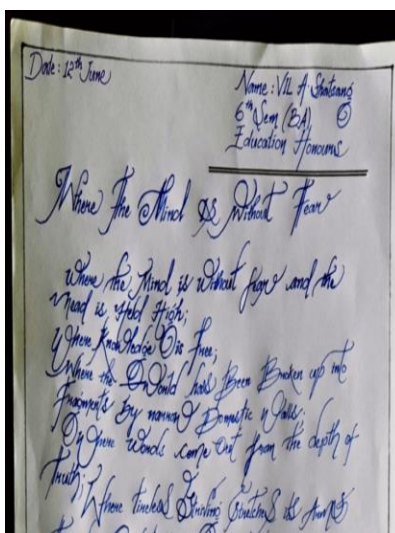 Date: 12th June
Name: VIL A Shatsang
6th Sem (BA)
Education Honours
Where The Mind Is Without Fear
Where the Mind is Without fear and the
Head is Held High;
Where Knowledge is free;
Where the World has Been Broken up into
Fragments by narrow Domestic walls;
Where Words come Out from the depth of
Truth;
Where tireless Striving Stretches its Arms